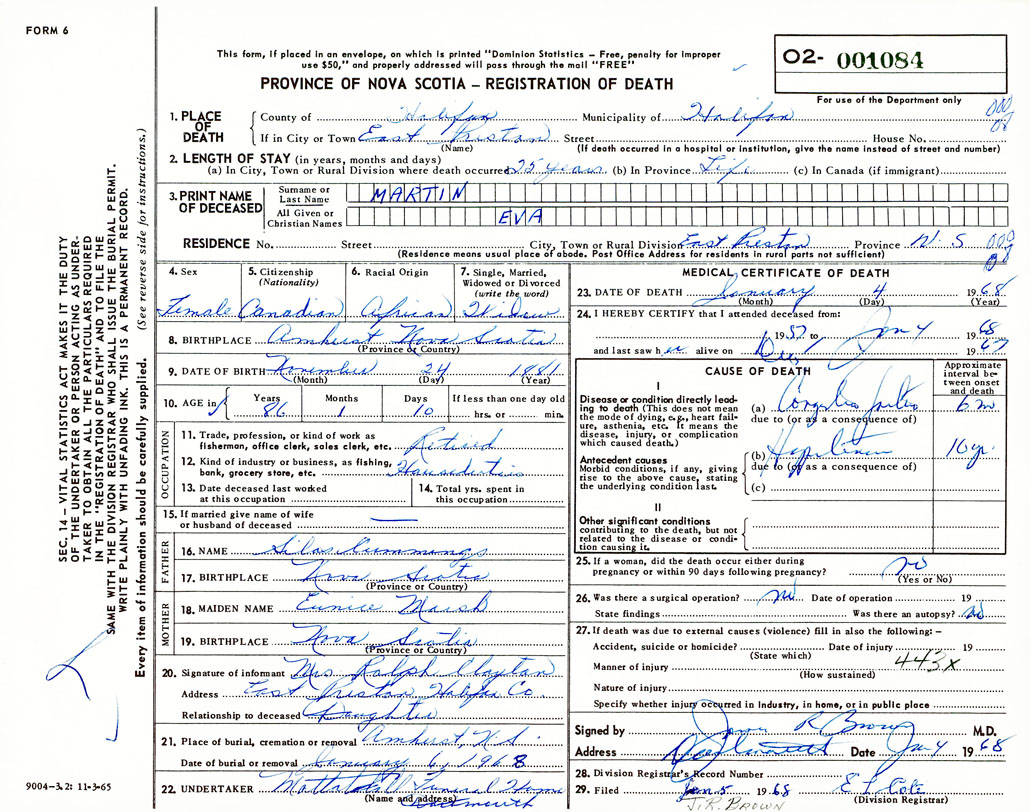 FORM 6
This form, if placed in an envelope, on which is printed "Dominion Statistics – Free, penalty for improper
use $50," and properly addressed will pass through the mail "FREE"
PROVINCE OF NOVA SCOTIA – REGISTRATION OF DEATH
O2- 001084
For use of the Department only
1. PLACE OF DEATH
County of Halifax Municipality of Halifax
If in City or Town East Preston Street House No.
(Name) (If death occurred in a hospital or institution, give the name instead of street and number)
2. LENGTH OF STAY (in years, months and days)
(a) In City, Town or Rural Division where death occurred 25 years (b) In Province Life (c) In Canada (if immigrant)
3. PRINT NAME OF DECEASED
Surname or Last Name MARTIN
All Given or Christian Names EVA
RESIDENCE No. Street City, Town or Rural Division East Preston Province N.S
(Residence means usual place of abode. Post Office Address for residents in rural parts not sufficient)
4. Sex Female
5. Citizenship (Nationality) Canadian
6. Racial Origin African
7. Single, Married, Widowed or Divorced (write the word) Widow
8. BIRTHPLACE Amherst Nova Scotia
(Province or Country)
9. DATE OF BIRTH November 24 1881
(Month) (Day) (Year)
10. AGE in Years 86 Months 1 Days 10 If less than one day old hrs. or min.
OCCUPATION
11. Trade, profession, or kind of work as fisherman, office clerk, sales clerk, etc. Retired
12. Kind of industry or business, as fishing, bank, grocery store, etc.
13. Date deceased last worked at this occupation
14. Total yrs. spent in this occupation
15. If married give name of wife or husband of deceased —
FATHER
16. NAME Silas Cummings
17. BIRTHPLACE Nova Scotia
(Province or Country)
MOTHER
18. MAIDEN NAME Eunice Marsh
19. BIRTHPLACE Nova Scotia
(Province or Country)
20. Signature of informant Mrs Ralph Clayton
Address East Preston Halifax Co.
Relationship to deceased Daughter
21. Place of burial, cremation or removal Amherst, N.S.
Date of burial or removal January 6, 1968
22. UNDERTAKER Mattatall Funeral Home
(Name and address) Dartmouth
MEDICAL CERTIFICATE OF DEATH
23. DATE OF DEATH January 4 1968
(Month) (Day) (Year)
24. I HEREBY CERTIFY that I attended deceased from:
1957 to Jan 4 1968
and last saw her alive on Dec 1967
CAUSE OF DEATH
Approximate interval between onset and death
I
Disease or condition directly leading to death (This does not mean the mode of dying, e.g., heart failure, asthenia, etc. It means the disease, injury, or complication which caused death.)
(a) 6 m
due to (or as a consequence of)
Antecedent causes
Morbid conditions, if any, giving rise to the above cause, stating the underlying condition last.
(b) 10 yr.
due to (or as a consequence of)
(c)
II
Other significant conditions contributing to the death, but not related to the disease or condition causing it.
25. If a woman, did the death occur either during pregnancy or within 90 days following pregnancy? no
(Yes or No)
26. Was there a surgical operation? no Date of operation 19
State findings Was there an autopsy? no
27. If death was due to external causes (violence) fill in also the following: –
Accident, suicide or homicide? Date of injury 19
(State which) 443X
Manner of injury
(How sustained)
Nature of injury
Specify whether injury occurred in industry, in home, or in public place
Signed by R Brown M.D.
Address Date Jan 4 1968
28. Division Registrar's Record Number
29. Filed Jan 5 1968 E L Cole
J.R. BROWN (Division Registrar)
SEC. 14 – VITAL STATISTICS ACT MAKES IT THE DUTY
OF THE UNDERTAKER OR PERSON ACTING AS UNDER-
TAKER TO OBTAIN ALL THE PARTICULARS REQUIRED
IN THE "REGISTRATION OF DEATH" AND TO FILE THE
SAME WITH THE DIVISION REGISTRAR WHO SHALL ISSUE THE BURIAL PERMIT.
WRITE PLAINLY WITH UNFADING INK. THIS IS A PERMANENT RECORD.
Every item of information should be carefully supplied. (See reverse side for instructions.)
9004-3.2: 11-3-65